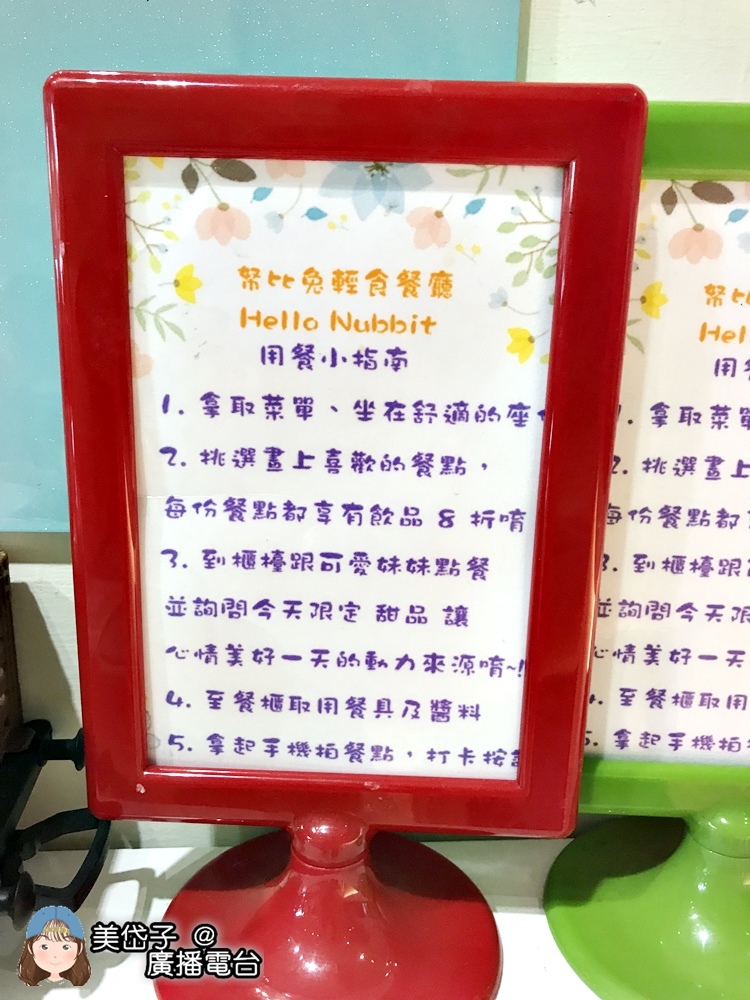 努比兔輕食餐廳
Hello Nubbit
用餐小指南
1. 拿取菜單、坐在舒適的座
2. 挑選畫上喜歡的餐點，
每份餐點都享有飲品 8 折唷
3. 到櫃檯跟可愛妹妹點餐
並詢問今天限定 甜品 讓
心情美好一天的動力來源唷~!
4. 至餐櫃取用餐具及醬料
5. 拿起手機拍餐點，打卡按
努
Hel
用
1. 拿取菜單
2. 挑選畫上
每份餐點都
3. 到櫃檯跟
並詢問今天限
心情美好一天
4. 至餐櫃取用
5. 拿起手機拍餐
美岱子 @
廣播電台